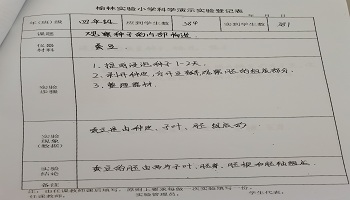 榆林实验小学科学演示实验登记表
年 月 日
年(班)级 四年级 应到学生数 38 实到学生数 38
课题 观察种子的内部构造
仪器材料 蚕豆
实验步骤
1、提前浸泡种子1-2天。
2、剥开种皮，分开豆瓣，观察胚的组成部分。
3、整理器材
实验现象(数据) 蚕豆是由种皮、子叶、胚组成的
实验结论 蚕豆的胚由两片子叶、胚芽、胚根和胚轴组成
备注
任课教师： 实验管理员： 学生代表：